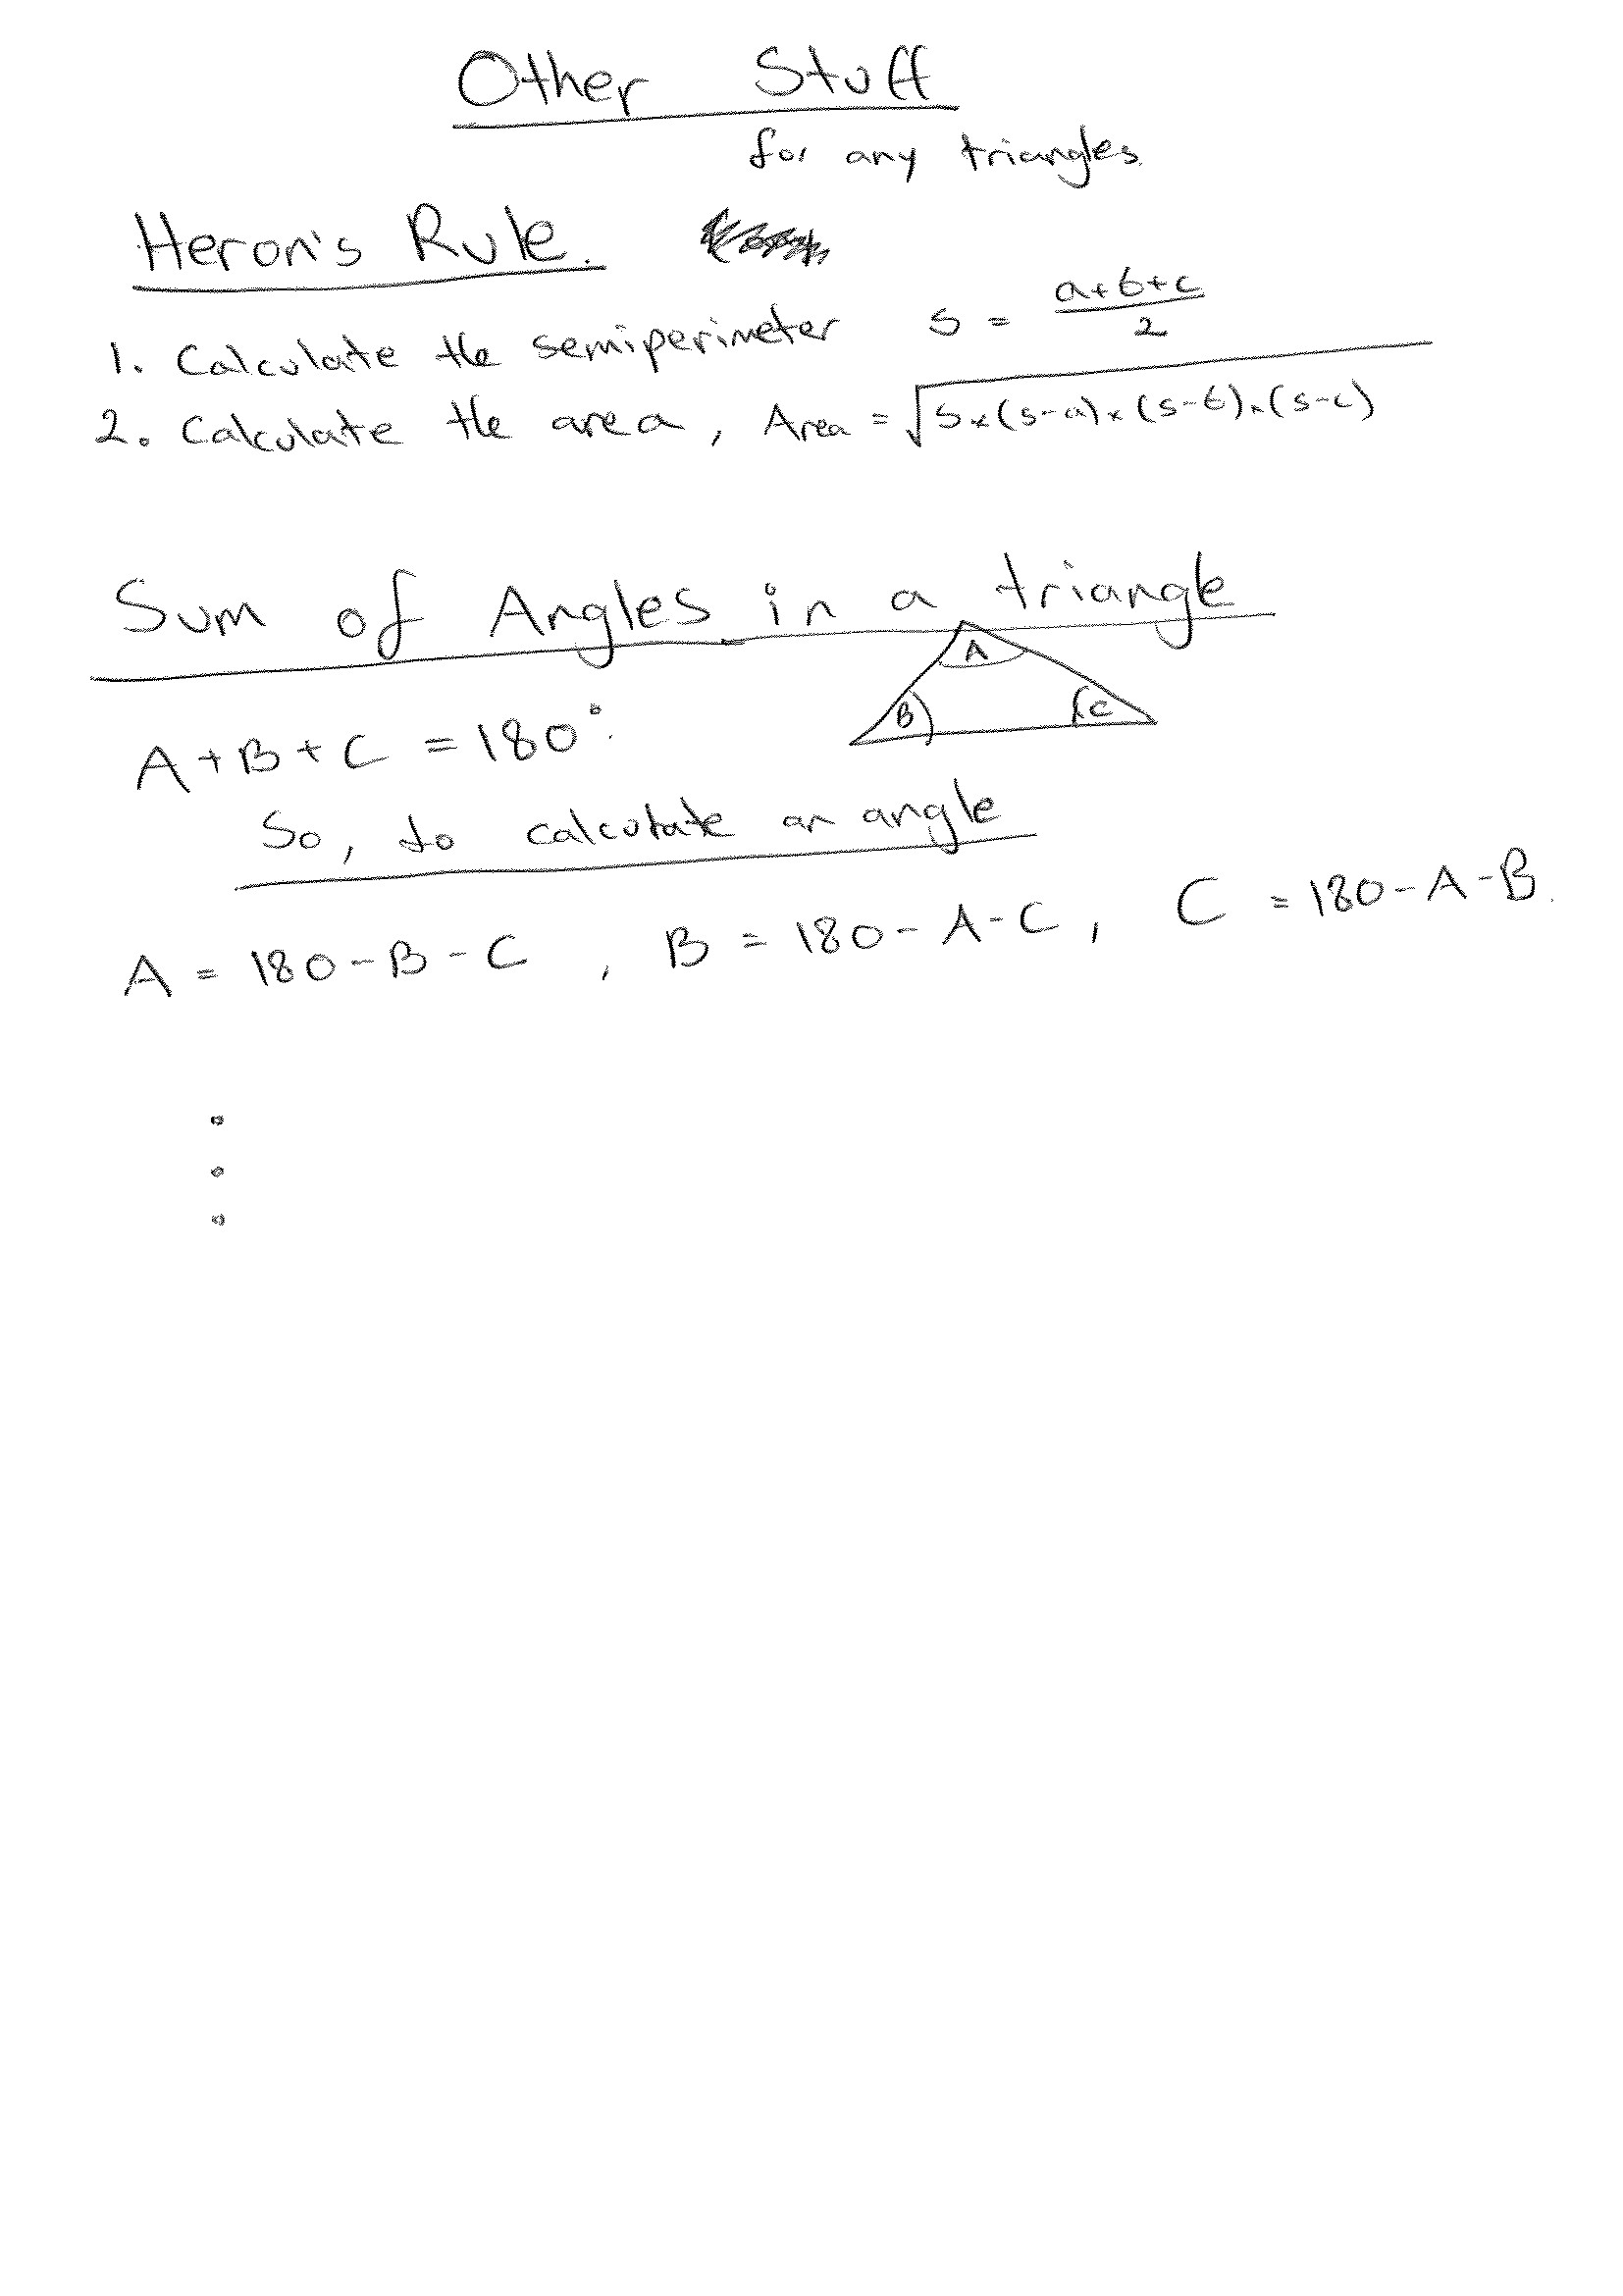 Other Stuff
for any triangles.
Heron's Rule.
1. Calculate the semiperimeter s = a+b+c / 2
2. Calculate the area, Area = √s×(s-a)×(s-b)×(s-c)
Sum of Angles in a triangle
A
B C
A+B+C = 180°.
So, to calculate an angle
A = 180-B-C , B = 180-A-C, C = 180-A-B.